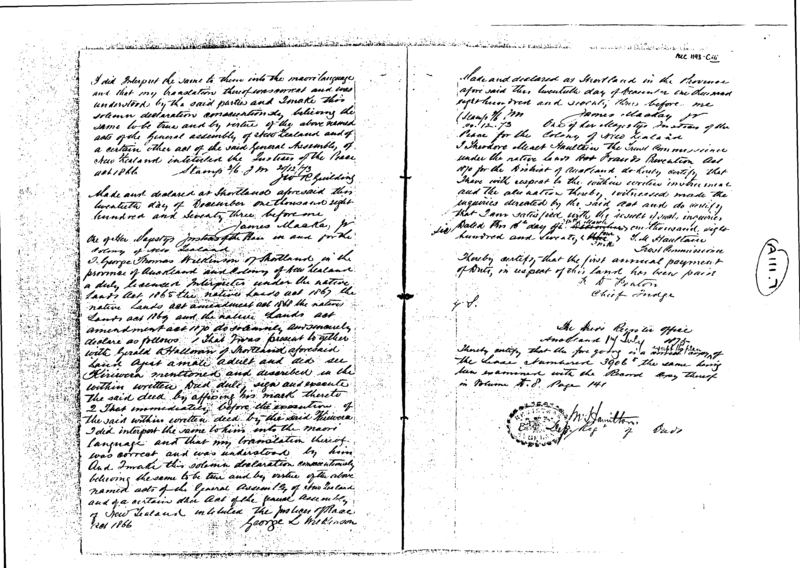 MLC 1193-Ciii
I did Interpret the same to them into the maori language
and that my translation thereof was correct and was
understood by the said parties and I make this
solemn declaration conscientiously believing the
same to be true and by virtue of the above named
acts of the General assembly of New Zealand and of
a certain other act of the said General Assembly of
New Zealand intituled the Justices of the Peace
act 1866
Made and declared at Shortland aforesaid this
twentieth day of December one thousand eight
hundred and seventy three before me
James Mackay, Jr
One of Her Majestys Justices of the Peace in and for the
Colony of New Zealand
I, George Thomas Wilkinson of Shortland in the
province of Auckland and Colony of New Zealand
a duly licensed Interpreter under the native
Lands act 1865 the native Lands act 1867 the
native Lands act amendment act 1868 the native
Lands act 1869 and the native Lands act
amendment act 1870 do solemnly and sincerely
declare as follows 1 That I was present together
with Gerald O'Halloran of Shortland aforesaid
and did see
Hiriwera mentioned and described in the
within written Deed duly sign and execute
the said deed by affixing his mark thereto
2 That immediately before the execution of
the said within written deed by the said Hiriwera
I did interpret the same to him into the maori
language and that my translation thereof
was correct and was understood by him
And I make this solemn declaration conscientiously
believing the same to be true and by virtue of the above
named acts of the General Assembly of New Zealand
and of a certain other Act of the General Assembly
of New Zealand intituled the Justices of Peace
act 1866
George T. Wilkinson
Made and declared at Shortland in the Province
aforesaid this twentieth day of December one thousand
eight hundred and seventy three before me
James Mackay Jr
20.12.73 One of Her Majestys Justices of the
Peace for the Colony of New Zealand
I Theodore Minet Haultain the Trust Commissioner
under the native Lands Frauds Prevention Act
1870 for the District of Auckland do hereby certify that
I have with respect to the within written instrument
and the alienation thereby witnessed made the
inquiries directed by the said act and do certify
that I am satisfied with the result of such inquiries
Dated this day of one thousand eight
hundred and seventy T. M. Haultain
Trust Commissioner
I hereby certify that the first annual payment
of Duty, in respect of this land has been paid
F. D. Fenton
Chief Judge
The Deeds Register office
Auckland 14 July
I hereby certify that the foregoing is a
the Lease numbered the same having
been examined with the Record Copy thereof
in Volume Page 141
of Deeds